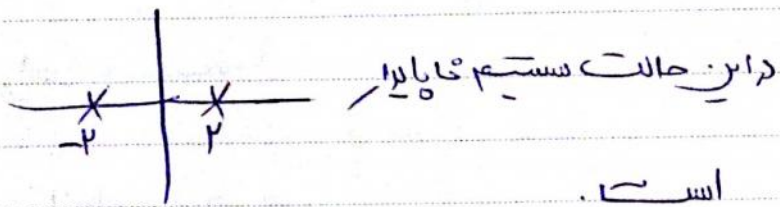 در این حالت سیستم ناپایدار
-۲ ۲
است.